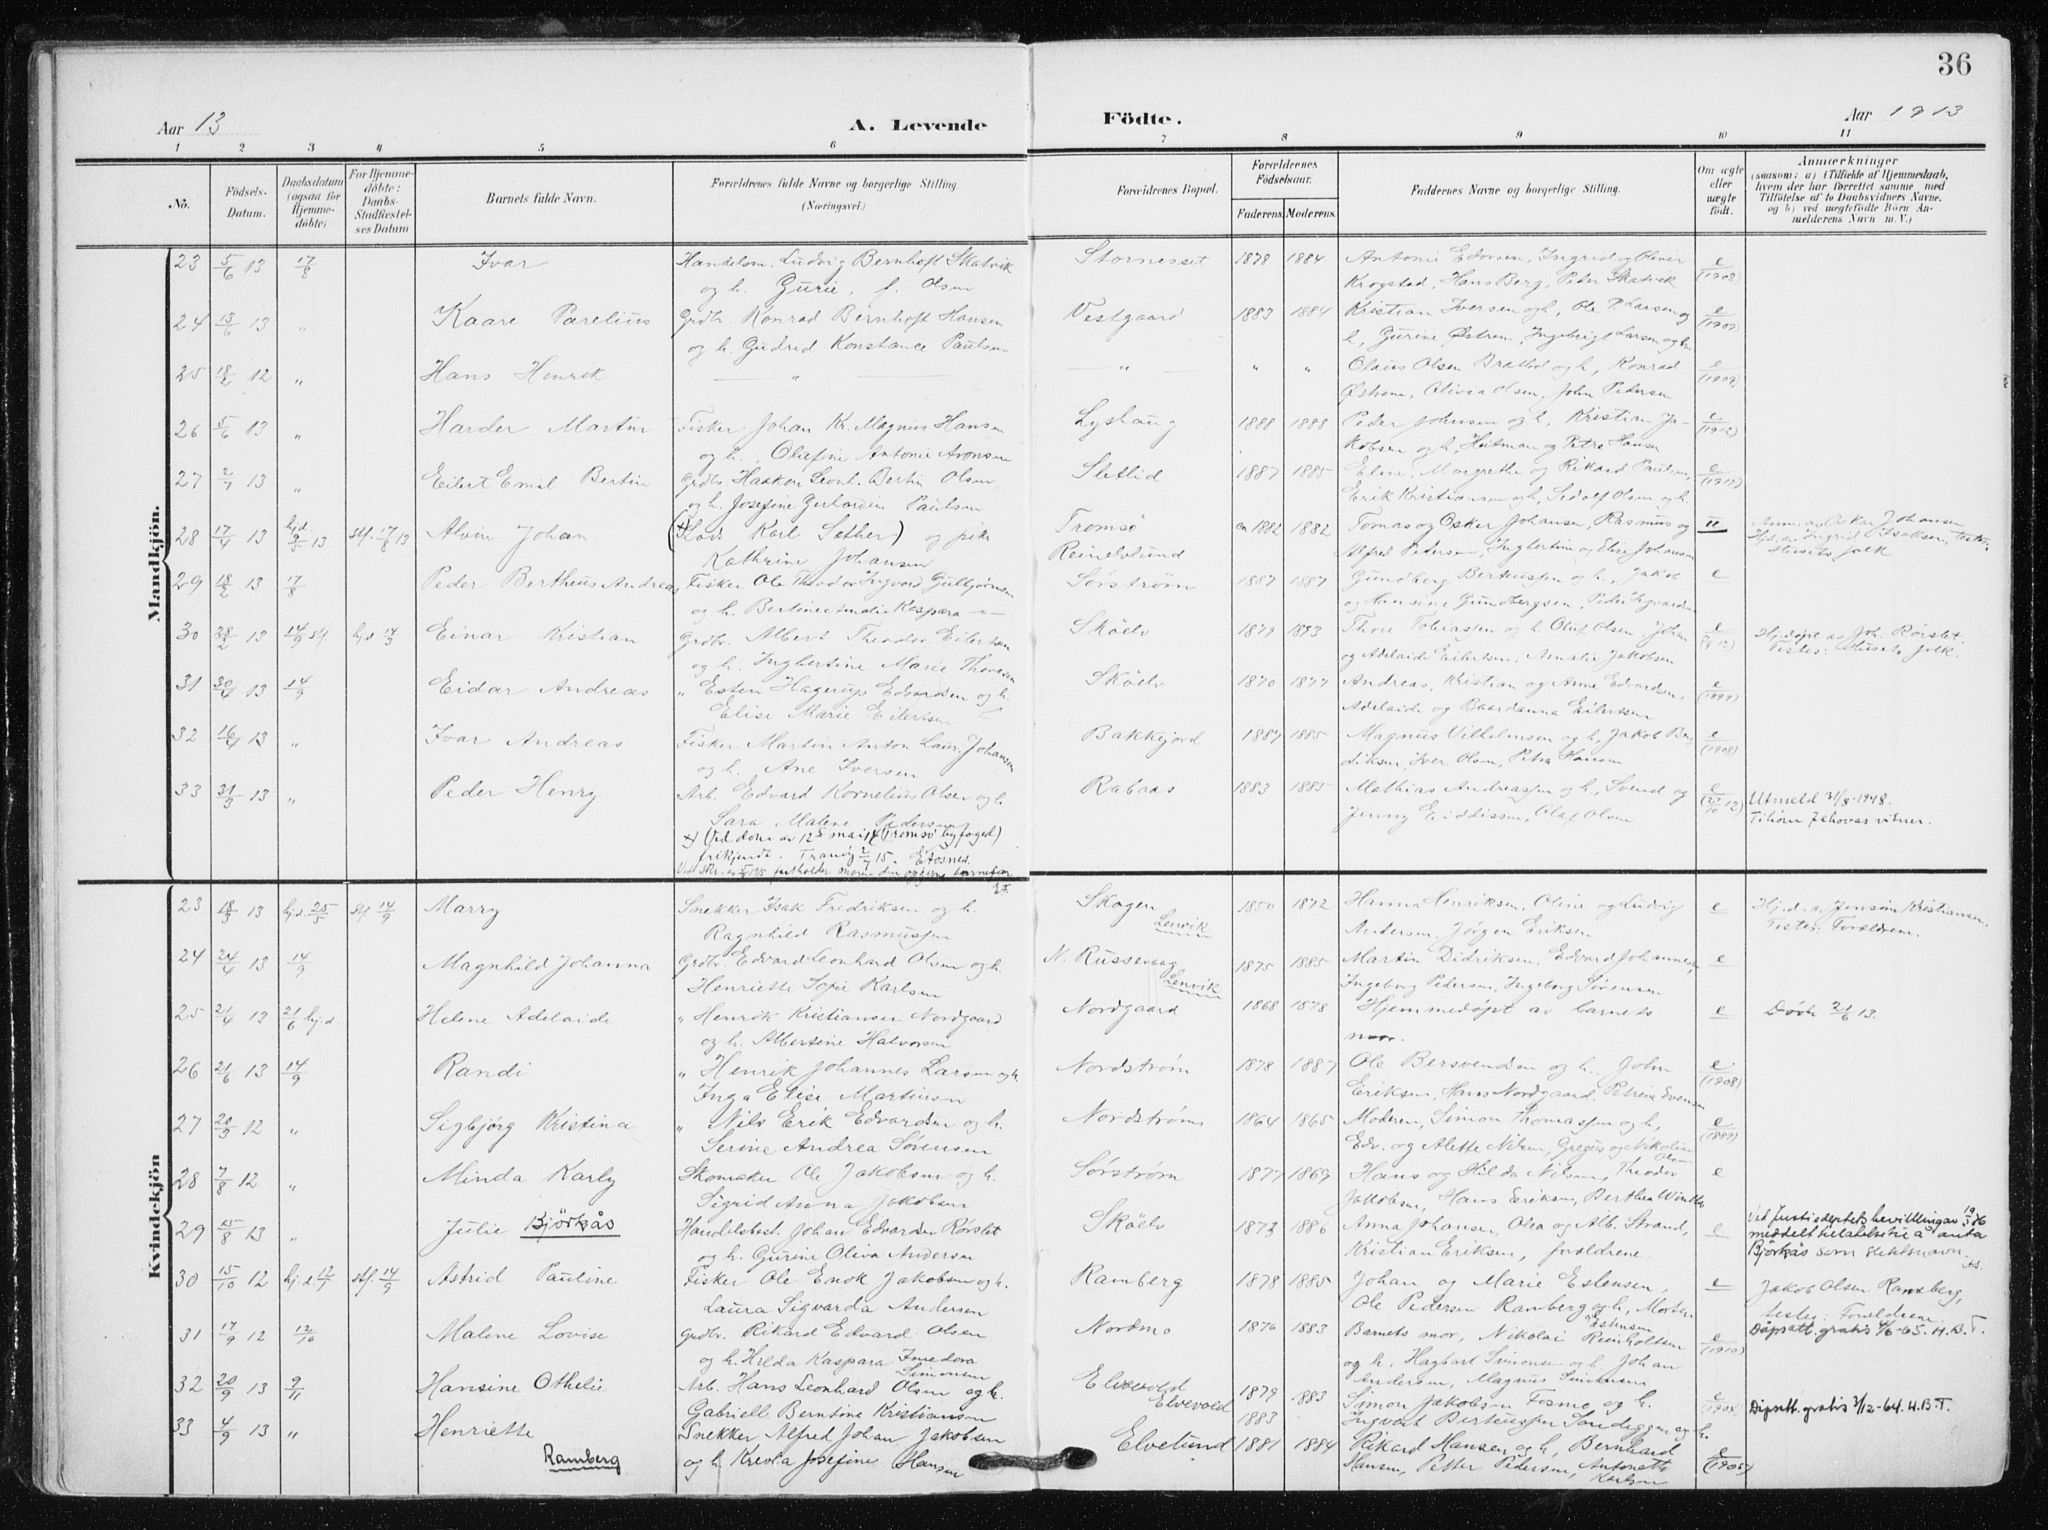 36
Aar 13
A. Levende
Födte.
Aar 1913
1 2 3 4 5 6 7 8 9 10 11
No.
Födsels-Datum.
Daabsdatum (ogsaa for Hjemmedöbte)
For Hjemmedöbte: Daabs-Stadfæstelses Datum
Barnets fulde Navn.
Forældrenes fulde Navne og borgerlige Stilling. (Næringsvei.)
Forældrenes Bopæl.
Forældrenes Födselsaar.
Faderens. Moderens.
Faddernes Navne og borgerlige Stilling.
Om ægte eller uægte födt.
Anmærkninger
(saasom: a) i Tilfælde af Hjemmedaab,
hvem der har forrettet samme, med
Tilföielse af to Daabsvidners Navne,
og b) ved uægtefödte Börn Anmelderens Navn m. V.)
Mandkjön.
23 5/6 13 17/8 Ivar Handelsm. Ludvig Bernhoft Skatvik Stornesset 1878 1884 Antonie Edvrsen, Ingrid og Oliver e
og h. Gurie, f. Olsen Krogstad, Hans Berg, Peder Skatvik (1908)
24 13/6 13 " Kaare Parelius Grdbr. Konrad Bernhoft Hansen Vestgaard 1883 1884 Kristian Iversen og h, Ole P. Larsen og e
og h. Gudrid Konstance Paulsen h, Gurine Østrem, Ingebrigt Larsen og h. (1909)
25 18/2 12 " Hans Henrik — " — — " — " " Olaus Olsen Bratlid og h, Konrad e
Østrem, Olivia Olsen, John Pedersen (1909)
26 5/6 13 " Harder Martin Fisker Johan Kr. Magnus Hansen Lyshaug 1888 1888 Peder Johnsen og h, Kristian Ja- e
og h. Olufine Antonie Aronsen kobsen og h, Heitman og Petra Hansen (1912)
27 2/7 13 " Eilert Emil Bertin Grdbr. Haaken Leonh. Bertin Olsen Sletlid 1887 1885 Eline, Margrethe og Rikard Paulsen, e
og h. Josefine Gerhardine Paulsen Erik Kristiansen og h, Sedolf Olsen og h. (1912)
28 17/4 13 hj.d. 9/5 13 stf. 17/8 13 Alvin Johan Karl Sæther) og pike Tromsø ca 1882 1882 Tomas og Oskar Johansen, Rasmus og u Anm. av Oskar Johansen
Kathrine Johansen Reinelvlund Alfred Pedersen, Ingbertine og Elise Johansen Hj.d. av Ingrid Isaksen, Test: Husets folk
29 18/2 13 17/8 Peder Bertheus Andreas Fisker Ole Theodor Ingvard Gulbjørnsen Sørstrøm 1887 1887 Gundberg Berteussen og h, Jakob e
og h. Bertine Amalie Kaspara — " — og Hansine Gundbergsen, Peder Ingvardsen
30 28/2 13 14/9 stf. hj.d. 14/3 Einar Kristian Grdbr. Albert Theodor Eilertsen Skøelv 1879 1883 Thore Tobiassen og h. Oluf Olsen, Johan e Hj.døpt av Joh. Rørslet.
og h. Ingbertine Marie Thoresen og Adelaide Eilertsen, Amalie Jakobsen Testes: Husets folk.
31 30/4 13 14/9 Eidar Andreas " Esten Hagerup Edvardsen og h. Skøelv 1870 1877 Andreas, Kristian og Anne Edvardsen, e
Elise Marie Eilertsen Adelaide og Baardanna Eilertsen (1899)
32 16/4 13 " Ivar Andreas Fisker Martin Anton Laur. Johansen Bakkejord 1887 1885 Magnus Vilhelmsen og h, Jakob Ben- e
og h. Ane Iversen diksen, Iver Olsen, Petra Hansen (1908)
33 31/3 13 " Peder Henry Arb. Edvard Kornelius Olsen og h. Rabaas 1883 1885 Mathias Andreassen og h, Svend og e Utmeld 31/8-1948.
Sara Malene Pedersen Jenny Eriddissen, Olaf Olsen Tilhører Jehovas vitner.
x) (Ved dom av 12te mai 14 (Tromsø byfoged)
frikjendt. Tranøy 2/7 15. E. Fosnes.
Kvindekjön
23 18/3 13 hj.d. 25/5 stf. 14/9 Marry Snekker Isak Fredriksen og h. Skogen 1850 1872 Hanna Henriksen, Oline og Ludvig e Hj.d. av Jensine Kristiansen.
Ragnhild Rasmussen Lenvik Andersen, Jørgen Eriksen Testes: Forældrene.
24 24/4 13 14/9 Magnhild Johanna Grdbr. Edvard Leonhard Olsen og h. N. Russevaag 1875 1885 Martin Didriksen, Edvard Johannesen, e
Henriette Sofie Karlsen Lenvik Ingeborg Pedersen, Ingeborg Sørensen
25 21/4 13 21/6 hj.d. Helene Adelaide " Henrik Kristiansen Nordgaard Nordgaard 1868 1878 Hjemmedøpt av barnets e Døde 21/6 13.
og h. Albertine Halvorsen mor.
26 21/6 13 14/9 Randi " Henrik Johannes Larsen og h. Nordstrøm 1878 1887 Ole Bersvendsen og h. John e
Inga Elise Martinsen Eriksen, Hans Nordgaard, Petrine Svensen (1908)
27 20/9 12 " Sigbjörg Kristina " Nils Erik Edvardsen og h. Nordstrøm 1864 1865 Moderen, Simon Thomassen og h, e
Serine Andrea Sørensen Edv. og Alette Nilsen, Gregus og Nikoline Olsen (1889)
28 7/8 12 " Minda Karly Skomaker Ole Jakobsen og h. Sørstrøm 1877 1869 Hans og Hilda Nilsen, Theodor e
Sigrid Anna Jakobsen Jakobsen, Hans Eriksen, Berthea Winther
29 15/8 13 " Julie Björkås Handelsbest. Johan Edvardsen Rørslet Skøelv 1873 1886 Anna Johansen, Olea og Alb. Strand, e Ved Justisdeptets bevilling av 19/3 36
og h. Gurine Oliva Andersen Kristian Eriksen, foreldrene. meddelt tillatelse til å anta Björkås som slektsnavn.
30 15/10 12 hj.d. 12/1 stf. 14/9 Astrid Pauline Fisker Ole Enok Jakobsen og h. Ramberg 1878 1885 Johan og Marie Estensen, e Jakob Olsen Ramberg,
Laura Sigvarda Andersen Ole Pedersen Ramberg og h, Morten Estensen testes: Forældrene.
31 17/9 12 12/10 Malene Lovise Grdbr. Rikard Edvard Olsen Nordmo 1876 1883 Barnets mor, Nikolai Reinholtsen e Dåpsatt. gratis 4/6-65. H.B.T.
og h. Hilda Kaspara Imedora Simonsen og h, Hagbart Simonsen og h, Johan Andersen, Magnus Simonsen (1910)
32 20/9 13 9/11 Hansine Othelie Arb. Hans Leonhard Olsen og h. Elvevold 1879 1883 Simon Jakobsen Fosmo og h. e Dåpsatt. gratis 3/12-64. H.B.T.
Gabrielle Berntine Kristiansen Elvevold 1883 Ingvart Berteussen og h.
33 4/9 13 " Henriette Snekker Alfred Johan Jakobsen Elvelund 1881 1884 Rikard Hansen og h, Bernhard e
Ramberg og h. Krevla Josefine Hansen Hansen, Petter Pedersen, Antonette Karlsen (1905)